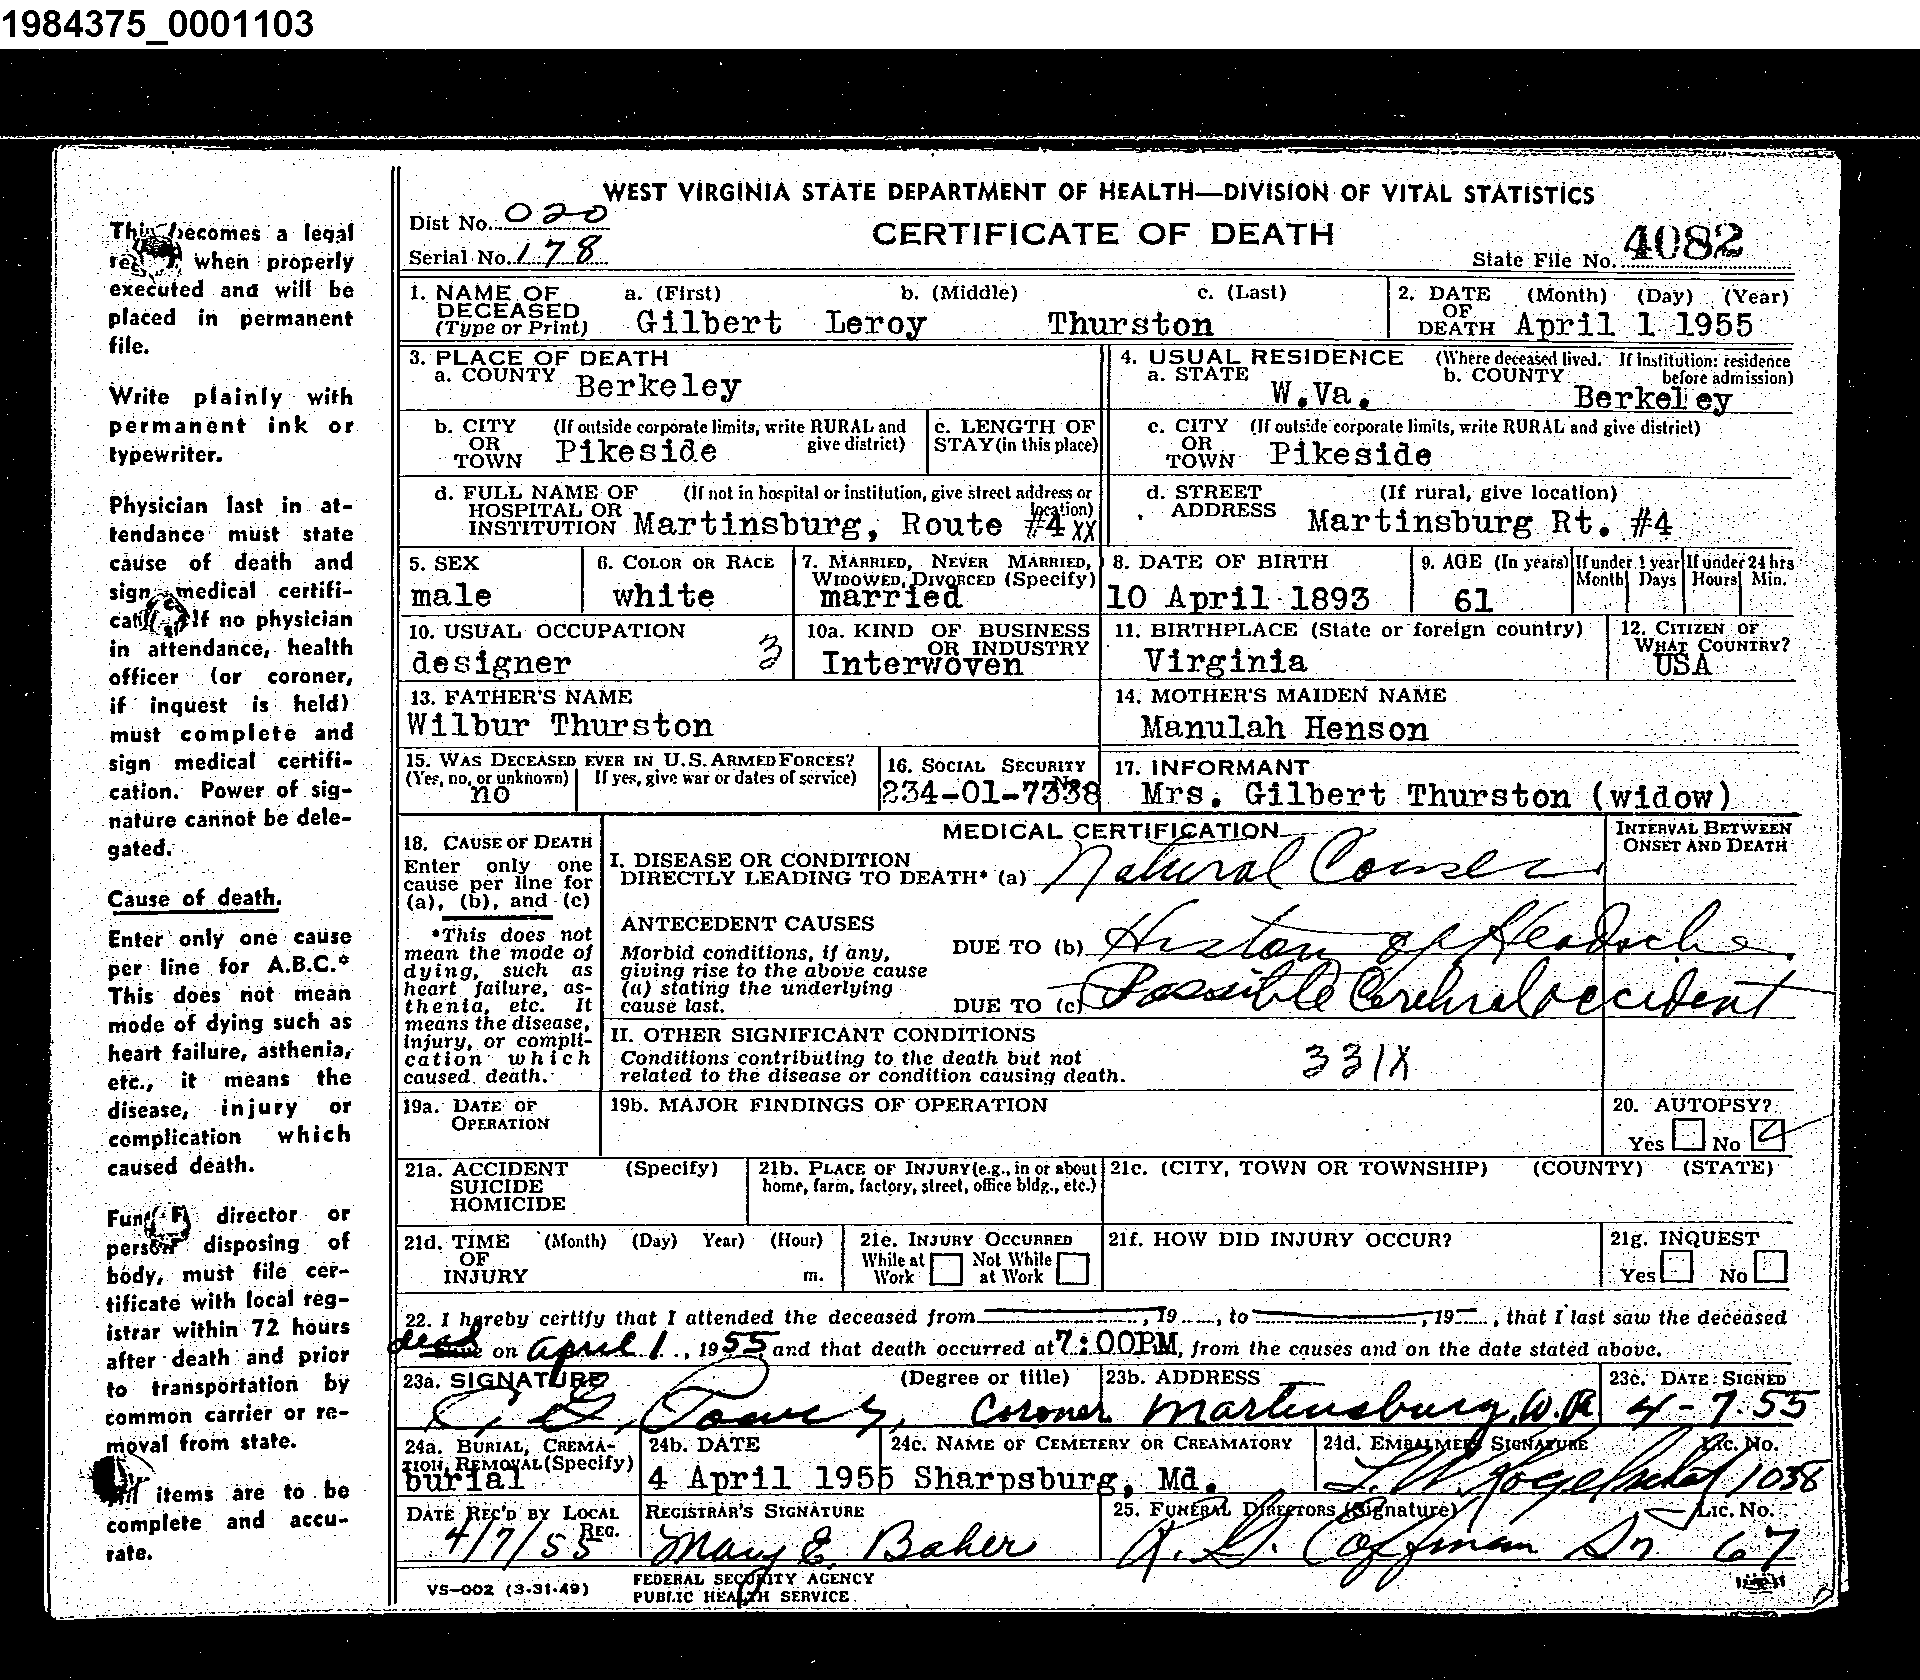 1984375_0001103
WEST VIRGINIA STATE DEPARTMENT OF HEALTH—DIVISION OF VITAL STATISTICS
Dist No. 020
CERTIFICATE OF DEATH
Serial No. 178
State File No. 4082
This becomes a legal
when properly
executed and will be
placed in permanent
file.
Write plainly with
permanent ink or
typewriter.
Physician last in at-
tendance must state
cause of death and
sign medical certifi-
If no physician
in attendance, health
officer (or coroner,
if inquest is held)
must complete and
sign medical certifi-
cation. Power of sig-
nature cannot be dele-
gated.
Cause of death.
Enter only one cause
per line for A.B.C.*
This does not mean
mode of dying such as
heart failure, asthenia,
etc., it means the
disease, injury or
complication which
caused death.
director or
person disposing of
body, must file cer-
tificate with local reg-
istrar within 72 hours
after death and prior
to transportation by
common carrier or re-
moval from state.
items are to be
complete and accu-
rate.
1. NAME OF DECEASED (Type or Print) a. (First) b. (Middle) c. (Last)
Gilbert Leroy Thurston
2. DATE OF DEATH (Month) (Day) (Year)
April 1 1955
3. PLACE OF DEATH
a. COUNTY Berkeley
4. USUAL RESIDENCE (Where deceased lived. If institution: residence before admission)
a. STATE W.Va. b. COUNTY Berkeley
b. CITY OR TOWN (If outside corporate limits, write RURAL and give district)
Pikeside
c. LENGTH OF STAY (in this place)
c. CITY OR TOWN (If outside corporate limits, write RURAL and give district)
Pikeside
d. FULL NAME OF HOSPITAL OR INSTITUTION (If not in hospital or institution, give street address or location)
Martinsburg, Route #4 XX
d. STREET ADDRESS (If rural, give location)
Martinsburg Rt. #4
5. SEX
male
6. COLOR OR RACE
white
7. MARRIED, NEVER MARRIED, WIDOWED, DIVORCED (Specify)
married
8. DATE OF BIRTH
10 April 1893
9. AGE (In years) If under 1 year Month Days If under 24 hrs Hours Min.
61
10. USUAL OCCUPATION
designer 3
10a. KIND OF BUSINESS OR INDUSTRY
Interwoven
11. BIRTHPLACE (State or foreign country)
Virginia
12. CITIZEN OF WHAT COUNTRY?
USA
13. FATHER'S NAME
Wilbur Thurston
14. MOTHER'S MAIDEN NAME
Manulah Henson
15. WAS DECEASED EVER IN U.S. ARMED FORCES?
(Yes, no, or unknown) If yes, give war or dates of service)
no
16. SOCIAL SECURITY No.
234-01-7338
17. INFORMANT
Mrs. Gilbert Thurston (widow)
18. CAUSE OF DEATH
Enter only one
cause per line for
(a), (b), and (c)
*This does not
mean the mode of
dying, such as
heart failure, as-
thenia, etc. It
means the disease,
injury, or compli-
cation which
caused death.
MEDICAL CERTIFICATION
INTERVAL BETWEEN ONSET AND DEATH
I. DISEASE OR CONDITION
DIRECTLY LEADING TO DEATH* (a) Natural Causes
ANTECEDENT CAUSES
Morbid conditions, if any,
giving rise to the above cause
(a) stating the underlying
cause last.
DUE TO (b) History of Headache.
DUE TO (c) Possible Cerebral accident
II. OTHER SIGNIFICANT CONDITIONS
Conditions contributing to the death but not
related to the disease or condition causing death.
331X
19a. DATE OF OPERATION
19b. MAJOR FINDINGS OF OPERATION
20. AUTOPSY?
Yes No
21a. ACCIDENT SUICIDE HOMICIDE (Specify)
21b. PLACE OF INJURY (e.g., in or about home, farm, factory, street, office bldg., etc.)
21c. (CITY, TOWN OR TOWNSHIP) (COUNTY) (STATE)
21d. TIME OF INJURY (Month) (Day) Year) (Hour) m.
21e. INJURY OCCURRED
While at Work Not While at Work
21f. HOW DID INJURY OCCUR?
21g. INQUEST
Yes No
22. I hereby certify that I attended the deceased from , 19 , to , 19 , that I last saw the deceased
dead alive on April 1 , 1955, and that death occurred at 7:00PM, from the causes and on the date stated above.
23a. SIGNATURE (Degree or title)
Coroner
23b. ADDRESS
Martinsburg, W. Va
23c. DATE SIGNED
4-7-55
24a. BURIAL, CREMA-
TION, REMOVAL (Specify)
burial
24b. DATE
4 April 1955
24c. NAME OF CEMETERY OR CREAMATORY
Sharpsburg, Md.
24d. EMBALMERS SIGNATURE Lic. No.
1038
DATE REC'D BY LOCAL REG.
4/7/55
REGISTRAR'S SIGNATURE
Mary E. Baker
25. FUNERAL DIRECTORS (Signature) Lic. No.
Coffman Sr 67
VS-002 (3-31-49)
FEDERAL SECURITY AGENCY
PUBLIC HEALTH SERVICE